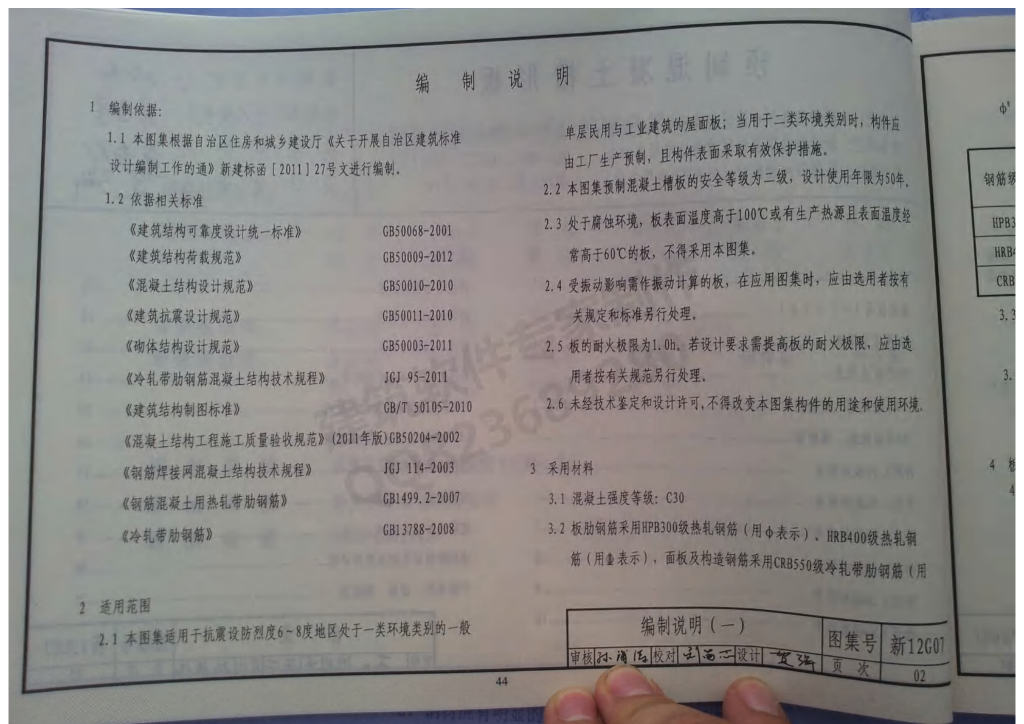 编 制 说 明
1 编制依据:
1.1 本图集根据自治区住房和城乡建设厅《关于开展自治区建筑标准
设计编制工作的通》新建标函[2011]27号文进行编制。
1.2 依据相关标准
《建筑结构可靠度设计统一标准》 GB50068-2001
《建筑结构荷载规范》 GB50009-2012
《混凝土结构设计规范》 GB50010-2010
《建筑抗震设计规范》 GB50011-2010
《砌体结构设计规范》 GB50003-2011
《冷轧带肋钢筋混凝土结构技术规程》 JGJ 95-2011
《建筑结构制图标准》 GB/T 50105-2010
《混凝土结构工程施工质量验收规范》(2011年版)GB50204-2002
《钢筋焊接网混凝土结构技术规程》 JGJ 114-2003
《钢筋混凝土用热轧带肋钢筋》 GB1499.2-2007
《冷轧带肋钢筋》 GB13788-2008
2 适用范围
2.1 本图集适用于抗震设防烈度6~8度地区处于一类环境类别的一般
单层民用与工业建筑的屋面板；当用于二类环境类别时，构件应
由工厂生产预制，且构件表面采取有效保护措施。
2.2 本图集预制混凝土槽板的安全等级为二级，设计使用年限为50年。
2.3 处于腐蚀环境，板表面温度高于100℃或有生产热源且表面温度经
常高于60℃的板，不得采用本图集。
2.4 受振动影响需作振动计算的板，在应用图集时，应由选用者按有
关规定和标准另行处理。
2.5 板的耐火极限为1.0h，若设计要求需提高板的耐火极限，应由选
用者按有关规范另行处理。
2.6 未经技术鉴定和设计许可，不得改变本图集构件的用途和使用环境。
3 采用材料
3.1 混凝土强度等级：C30
3.2 板肋钢筋采用HPB300级热轧钢筋（用ϕ表示）、HRB400级热轧钢
筋（用⏀表示），面板及构造钢筋采用CRB550级冷轧带肋钢筋（用
编制说明（一） 图集号 新12G07
审核 校对 设计 页 次 02
44
钢筋级
HPB3
HRB4
CRB
3.3
3.
4 板
4